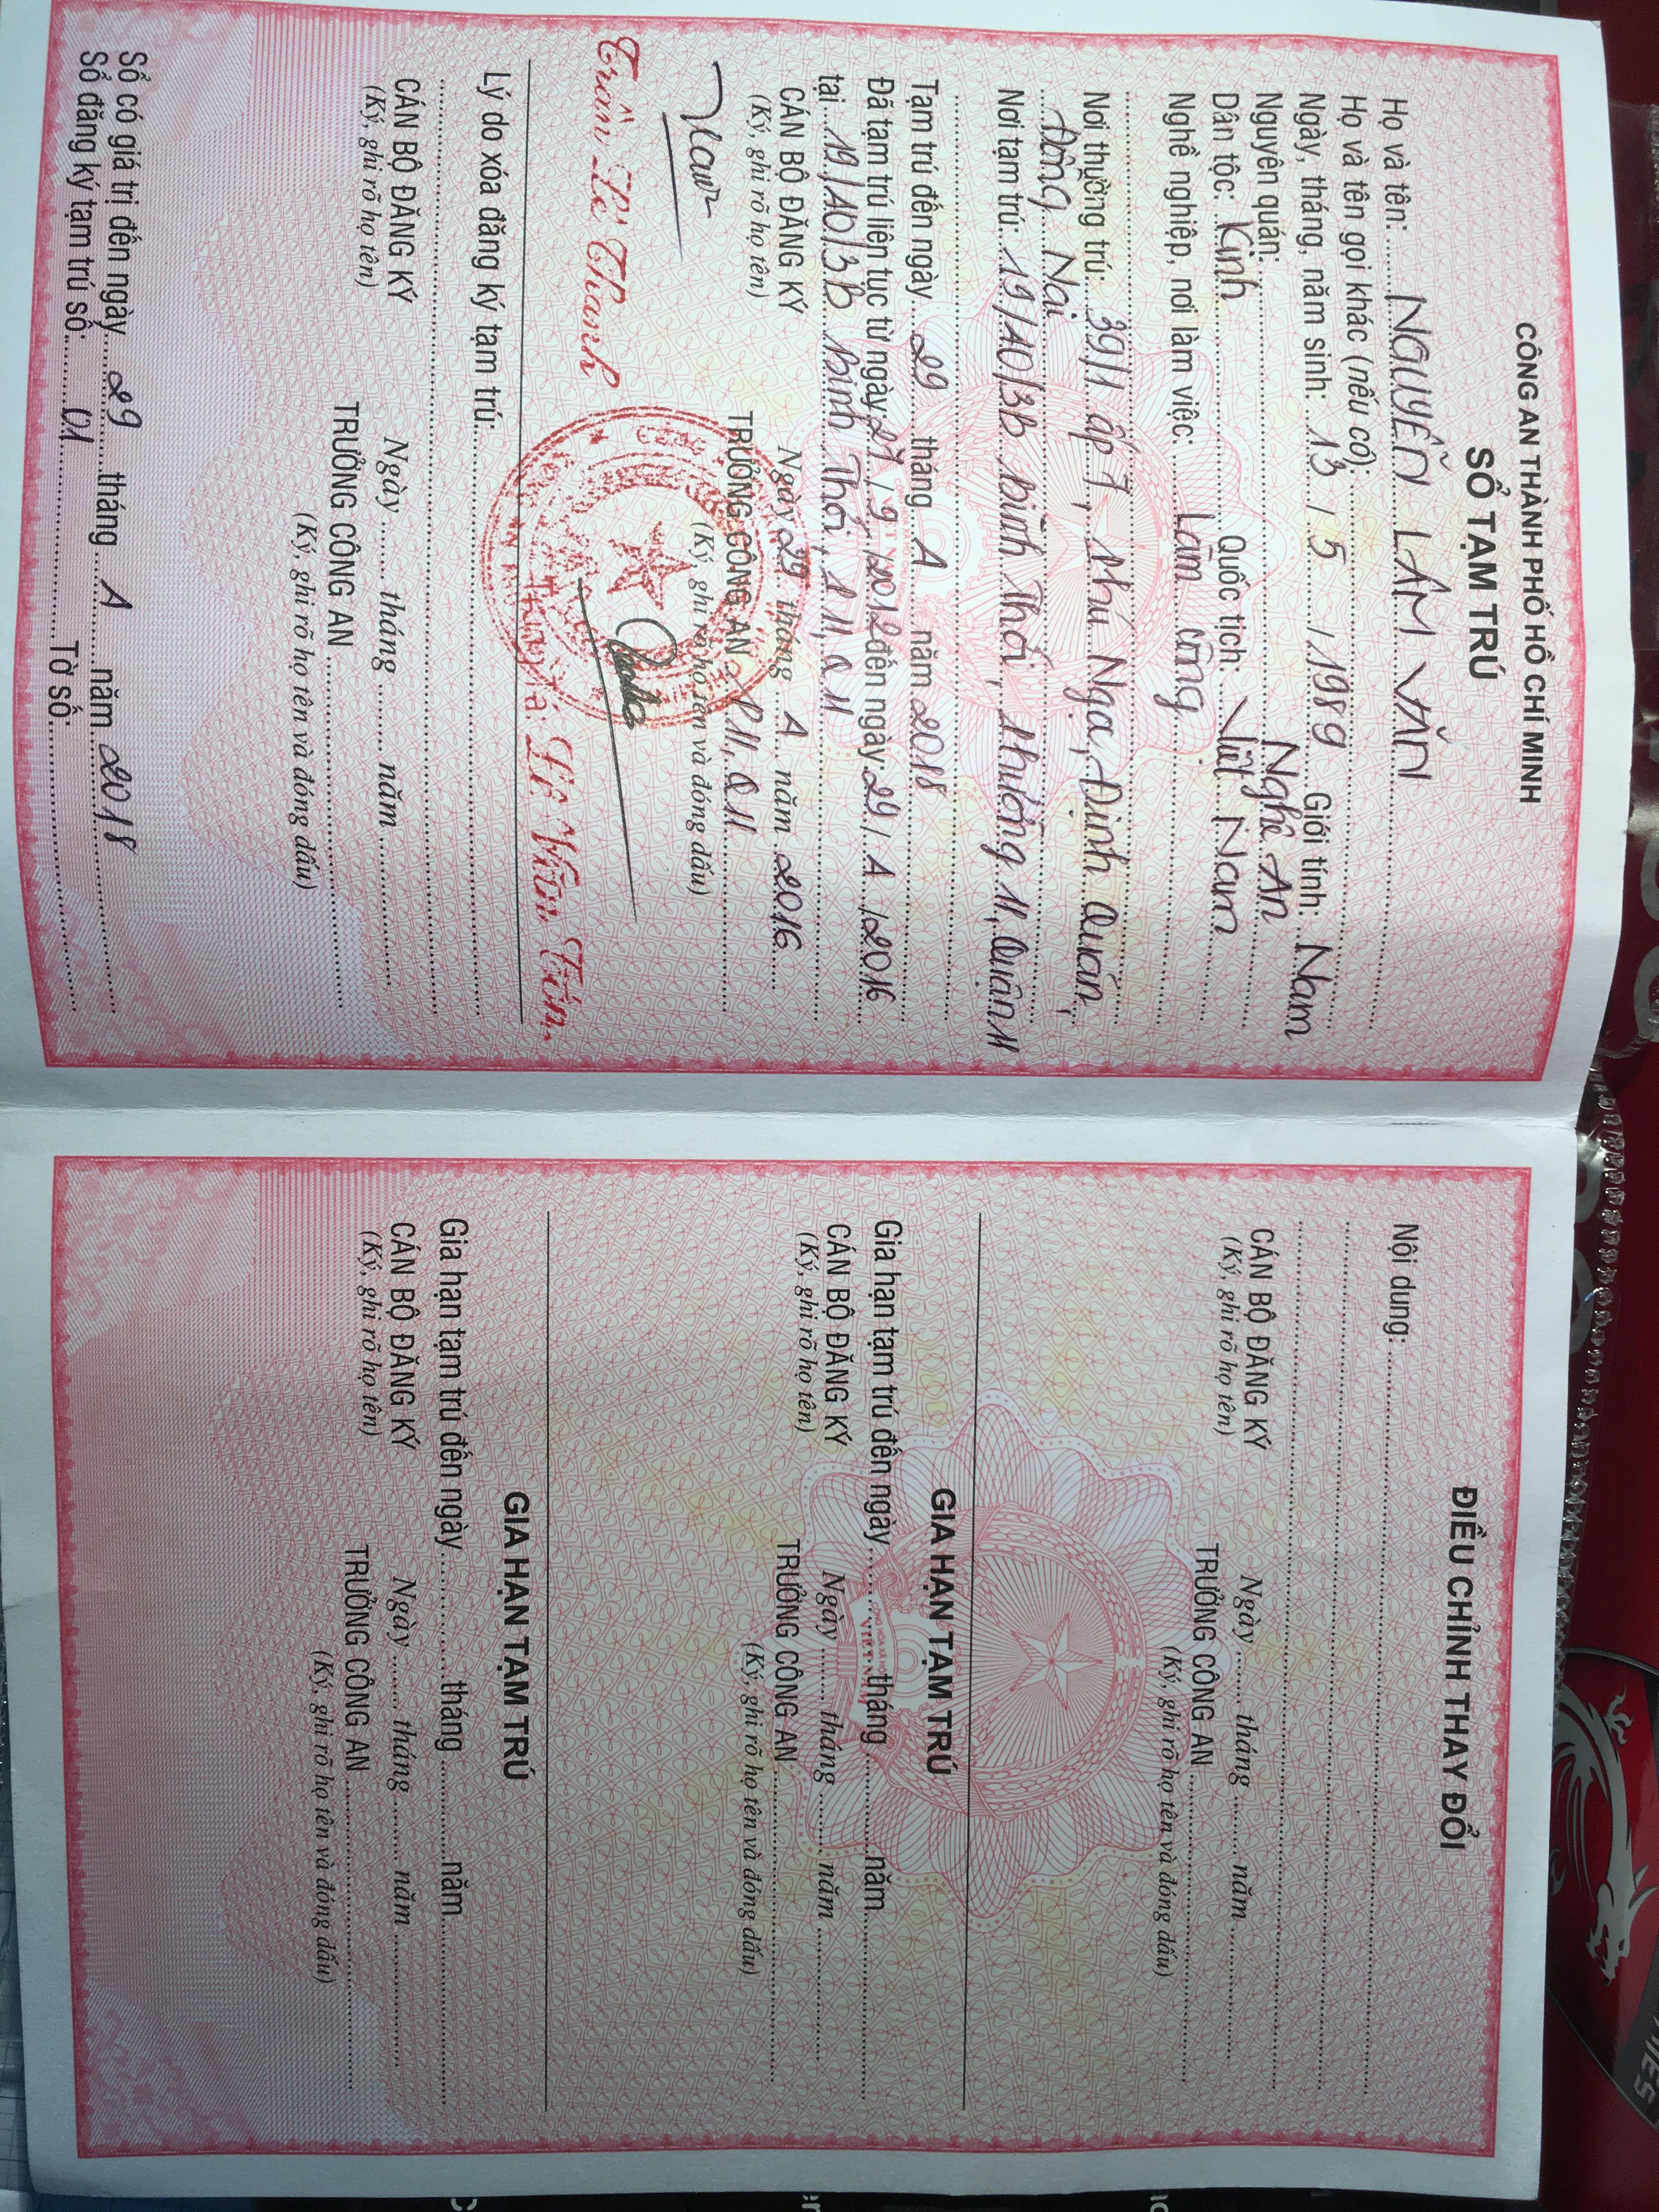 CÔNG AN THÀNH PHỐ HỒ CHÍ MINH
SỔ TẠM TRÚ
Họ và tên: NGUYỄN LÂM VĂN
Họ và tên gọi khác (nếu có):
Ngày, tháng, năm sinh: 13 / 5 / 1989 Giới tính: Nam
Nguyên quán: Nghệ An
Dân tộc: Kinh Quốc tịch: Việt Nam
Nghề nghiệp, nơi làm việc: Làm công
Nơi thường trú: 39/1 ấp 7, Phú Ngọc, Định Quán,
Đồng Nai
Nơi tạm trú: 19/10/3B Bình Thới, Phường 11, Quận 11
Tạm trú đến ngày 29 tháng 1 năm 2018
Đã tạm trú liên tục từ ngày 27 / 9 / 2012 đến ngày 29 / 1 / 2016
tại 19/10/3B Bình Thới, P11, Q11
Ngày 29 tháng 1 năm 2016
CÁN BỘ ĐĂNG KÝ
(Ký, ghi rõ họ tên)
TRƯỞNG CÔNG AN P11, Q11
(Ký, ghi rõ họ tên và đóng dấu)
Trần Lê Thanh
Lê Văn Tốn
Lý do xóa đăng ký tạm trú:
Ngày tháng năm
CÁN BỘ ĐĂNG KÝ
(Ký, ghi rõ họ tên)
TRƯỞNG CÔNG AN
(Ký, ghi rõ họ tên và đóng dấu)
Sổ có giá trị đến ngày 29 tháng 1 năm 2018
Sổ đăng ký tạm trú số: 01 Tờ số:
ĐIỀU CHỈNH THAY ĐỔI
Nội dung:
Ngày tháng năm
CÁN BỘ ĐĂNG KÝ
(Ký, ghi rõ họ tên)
TRƯỞNG CÔNG AN
(Ký, ghi rõ họ tên và đóng dấu)
GIA HẠN TẠM TRÚ
Gia hạn tạm trú đến ngày tháng năm
Ngày tháng năm
CÁN BỘ ĐĂNG KÝ
(Ký, ghi rõ họ tên)
TRƯỞNG CÔNG AN
(Ký, ghi rõ họ tên và đóng dấu)
GIA HẠN TẠM TRÚ
Gia hạn tạm trú đến ngày tháng năm
Ngày tháng năm
CÁN BỘ ĐĂNG KÝ
(Ký, ghi rõ họ tên)
TRƯỞNG CÔNG AN
(Ký, ghi rõ họ tên và đóng dấu)